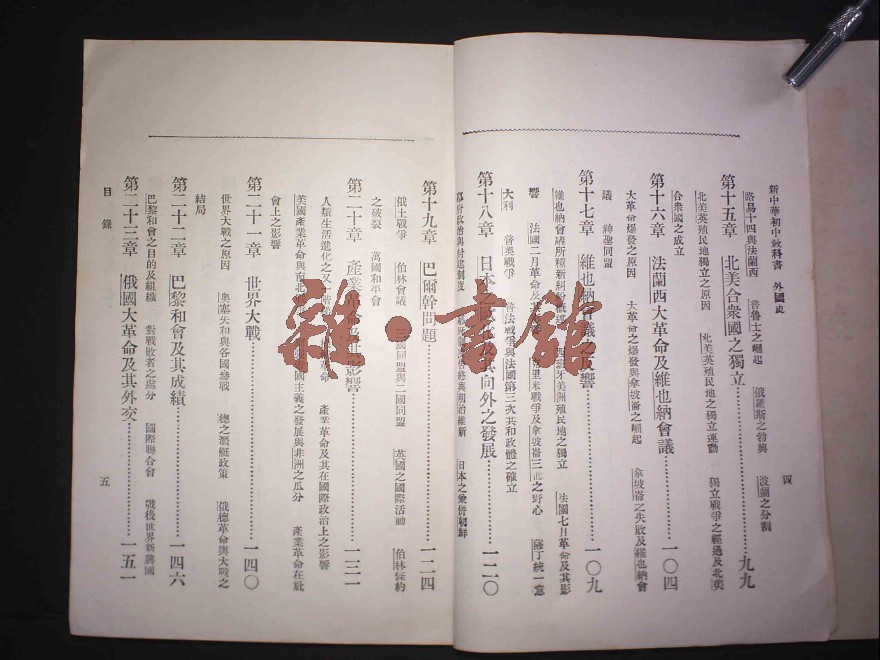 新中華初中教科書 外國史
四
路易十四與法蘭西 普魯士之崛起 俄羅斯之勃興 波蘭之分割
第十五章 北美合衆國之獨立 九九
北美英殖民地獨立之原因 北美英殖民地之獨立運動 獨立戰爭之經過及北美
合衆國之成立
第十六章 法蘭西大革命及維也納會議 一〇四
大革命爆發之原因 大革命之爆發與拿坡崙之崛起 拿坡崙之失敗及維也納會
議 神聖同盟
第十七章 維也納會議之反響 一〇九
維也納會議所釀新糾紛 美洲殖民地之獨立 法國七月革命及其影
響 法國二月革命及其 里米戰爭及拿坡崙三世之野心 薩丁統一意
大利 普奧戰爭 普法戰爭與法國第三次共和政體之確立
第十八章 日本之 其向外之發展 一二〇
幕府政治與封建制度 與明治維新 日本之愛併朝鮮
第十九章 巴爾幹問題 一二四
俄土戰爭 伯林會議 三國同盟與二國同盟 英國之國際活動 伯林條約
之破裂 萬國和平會
第二十章 產業革命及其影響 一三一
人類生活進化之又一 革命 產業革命及其在國際政治上之影響
美國產業革命與南北 國主義之發展與非洲之瓜分 產業革命在社
會上之影響
第二十一章 世界大戰 一四〇
世界大戰之原因 奧塞失和與各國參戰 德之潛艇政策 俄德革命與大戰之
結局
第二十二章 巴黎和會及其成績 一四六
巴黎和會之目的及組織 對戰敗者之處分 國際聯合會 戰後世界新興國
第二十三章 俄國大革命及其外交 一五一
目錄
五
雜·書館